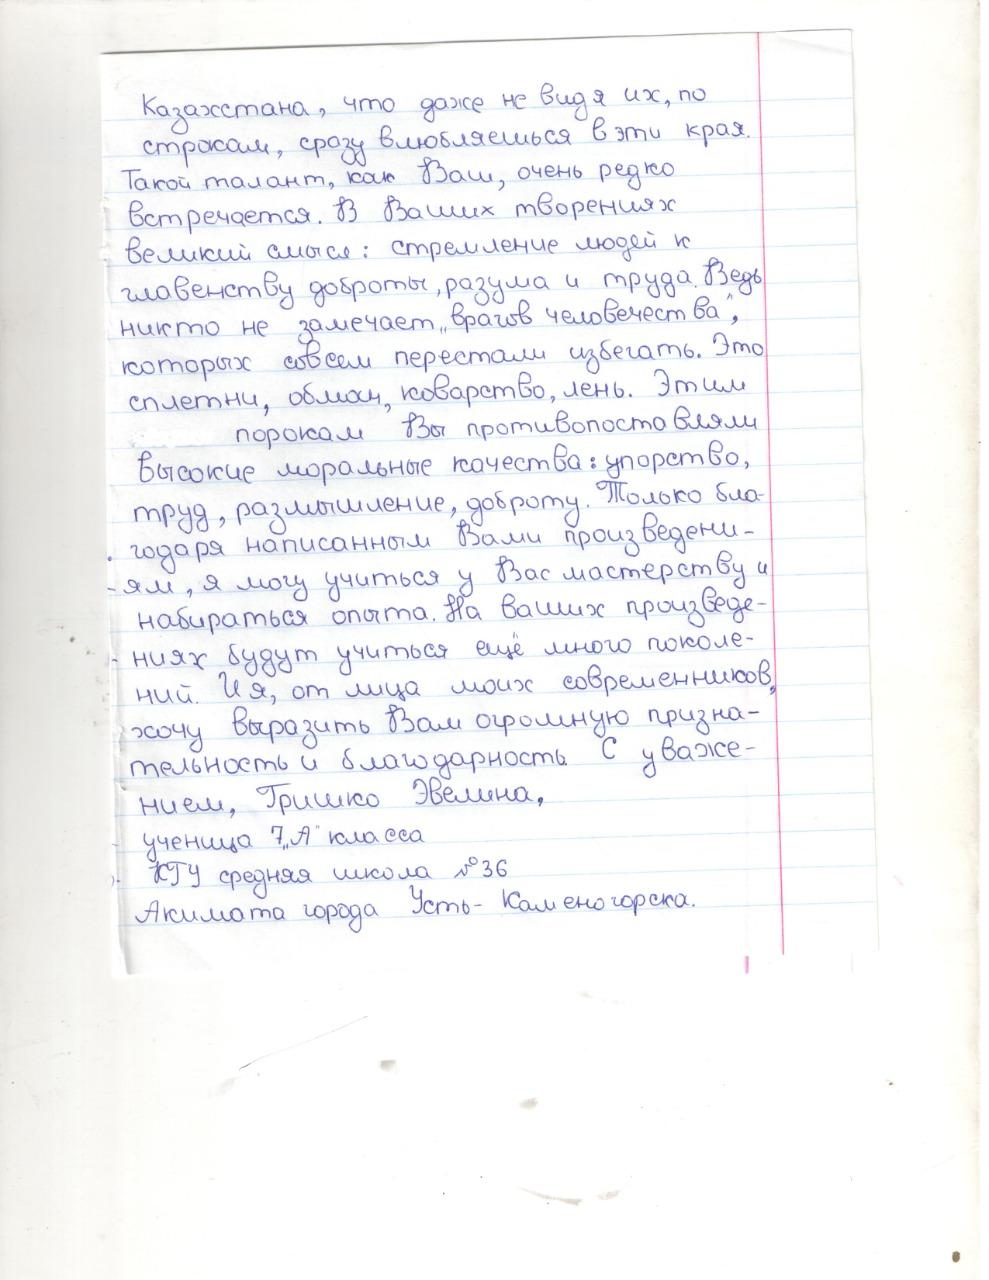 Казахстана, что даже не видя их, по
строкам, сразу влюбляешься в эти края.
Такой талант, как Ваш, очень редко
встречается. В Ваших творениях
великий смысл: стремление людей к
главенству доброты, разума и труда. Ведь
никто не замечает „врагов человечества",
которых совсем перестали избегать. Это
сплетни, обман, коварство, лень. Этим
порокам Вы противопоставляли
высокие моральные качества: упорство,
труд, размышление, доброту. Только бла-
годаря написанным Вами произведени-
ям, я могу учиться у Вас мастерству и
набираться опыта. На ваших произведе-
ниях будут учиться ещё много поколе-
ний. И я, от лица моих современников,
хочу выразить Вам огромную призна-
тельность и благодарность. С уваже-
нием, Гришко Эвелина,
ученица 7„А" класса
КГУ средняя школа №36
Акимата города Усть-Каменогорска.